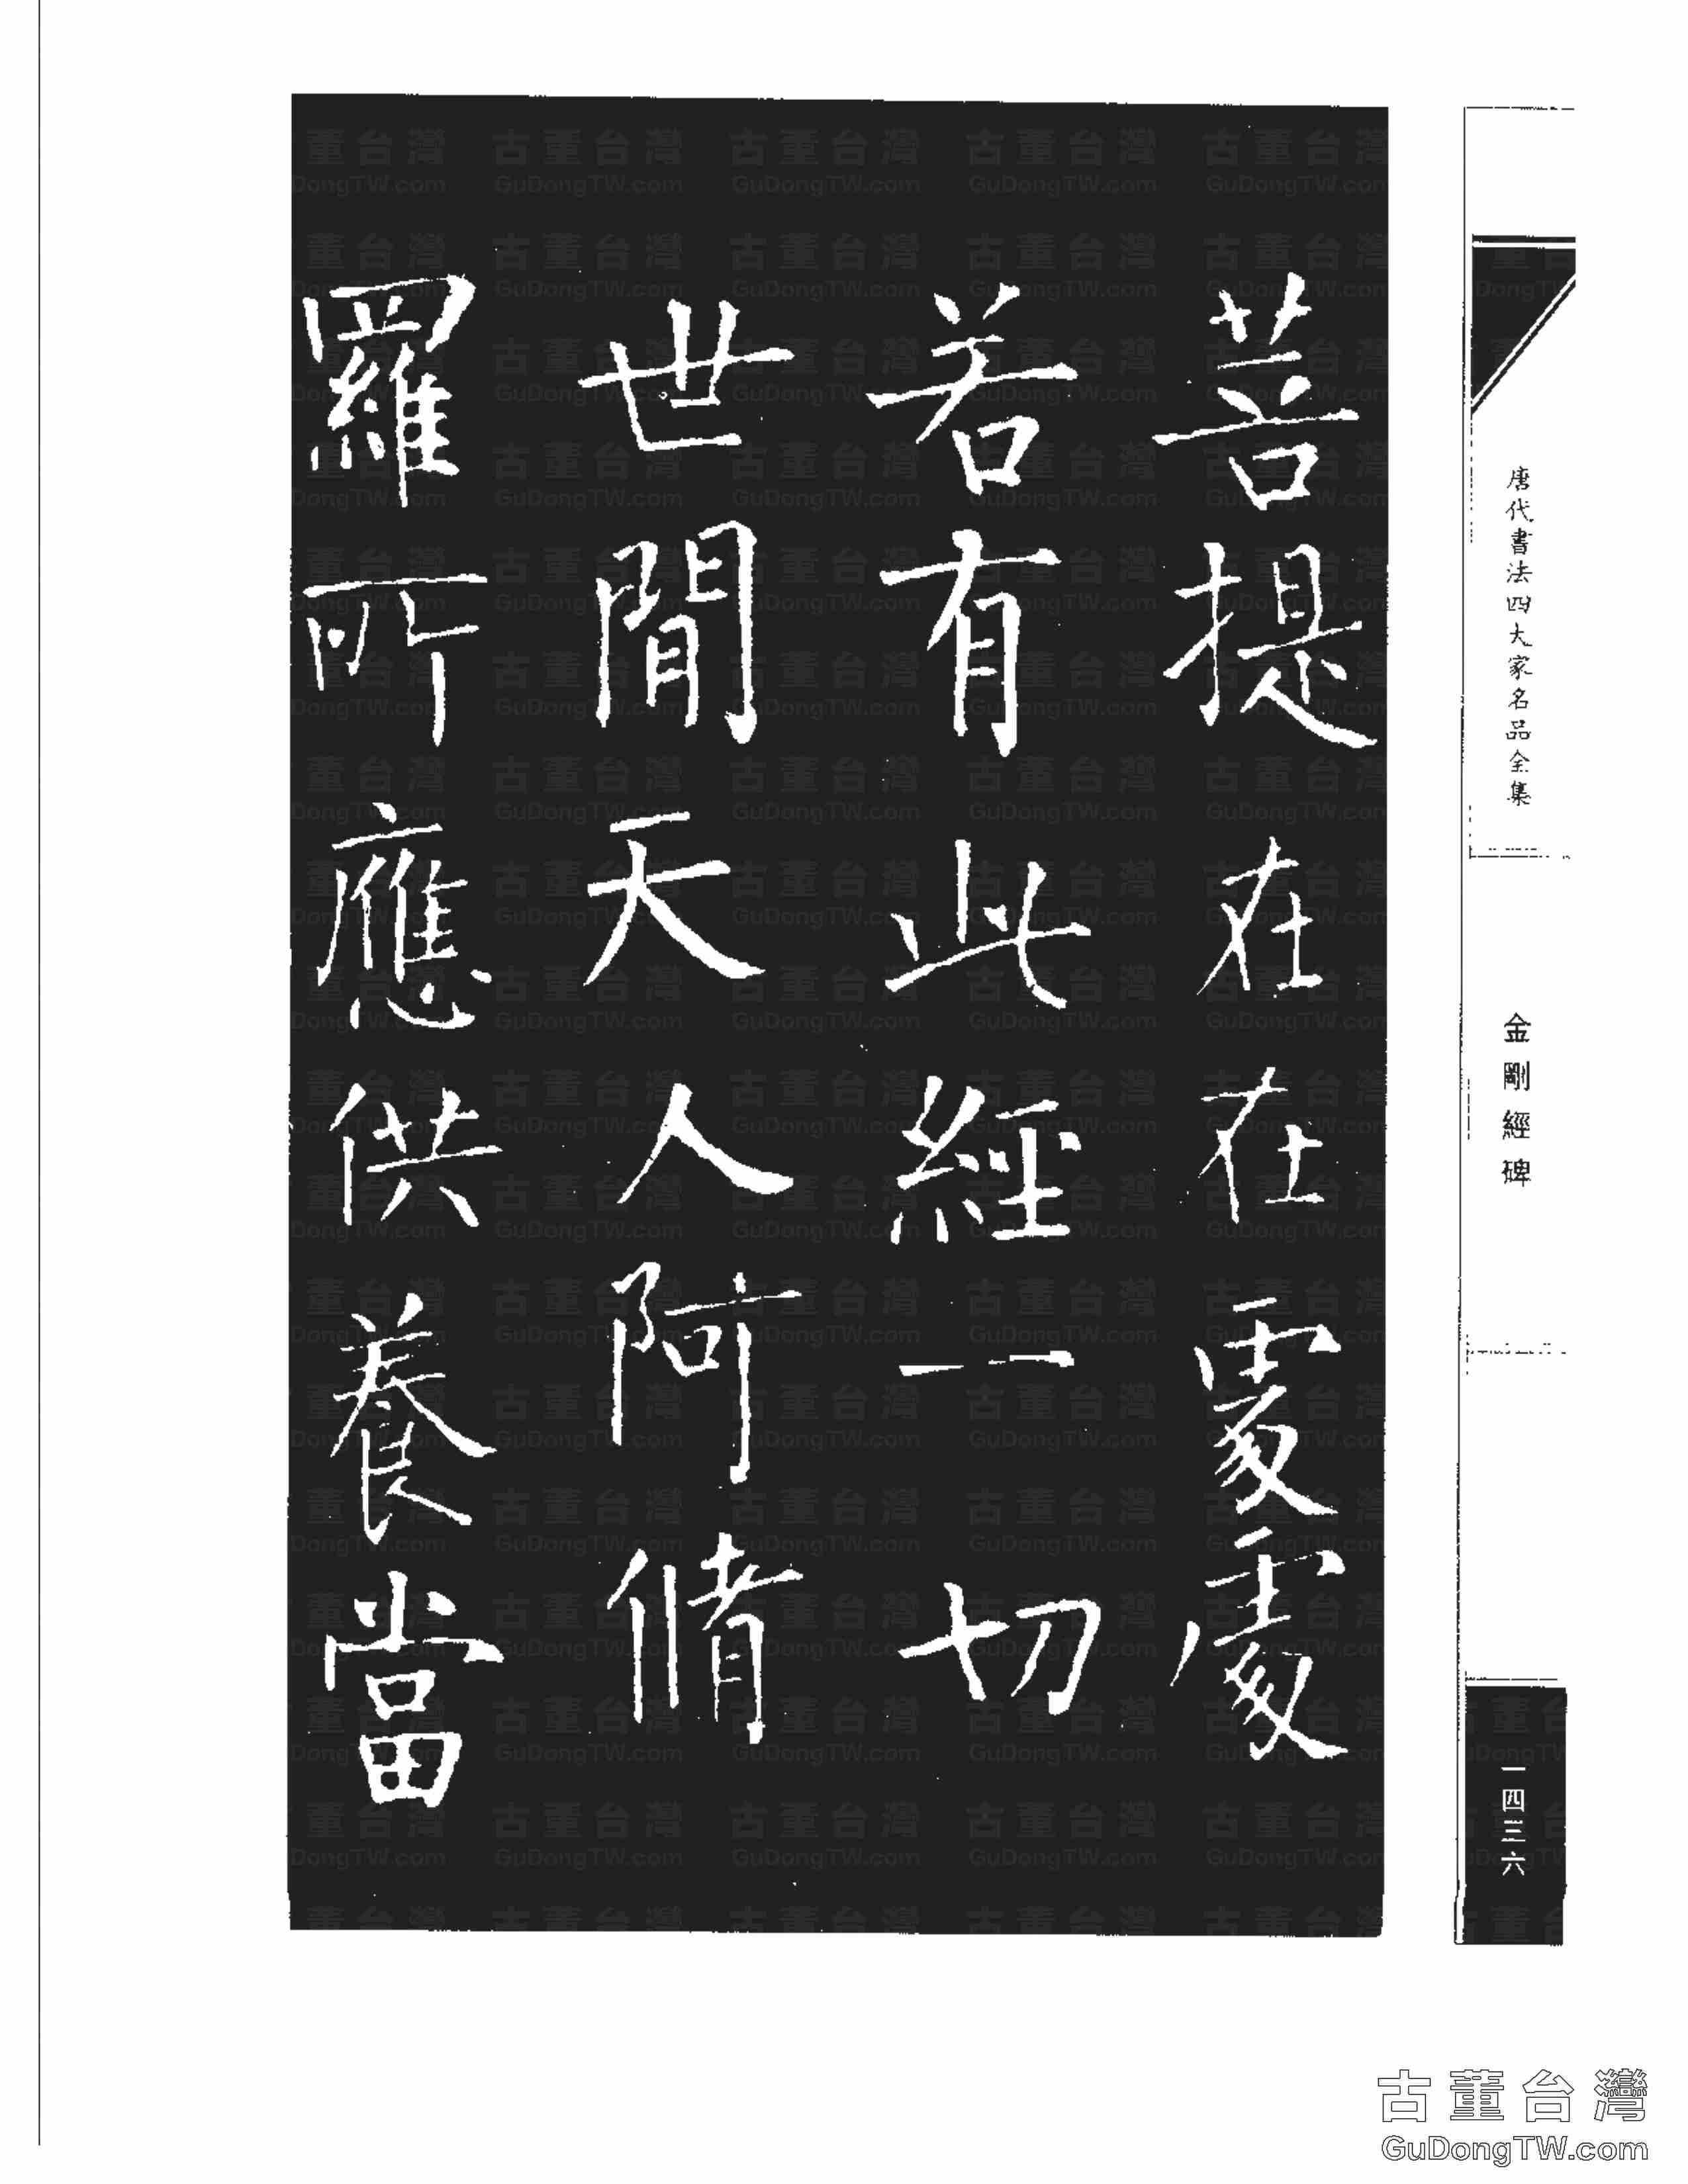 菩提在在處處
若有此經一切
世間天人阿脩
羅所應供養當
唐代書法四大家名品全集
金剛經碑
一四三六
古董台灣
GuDongTW.com